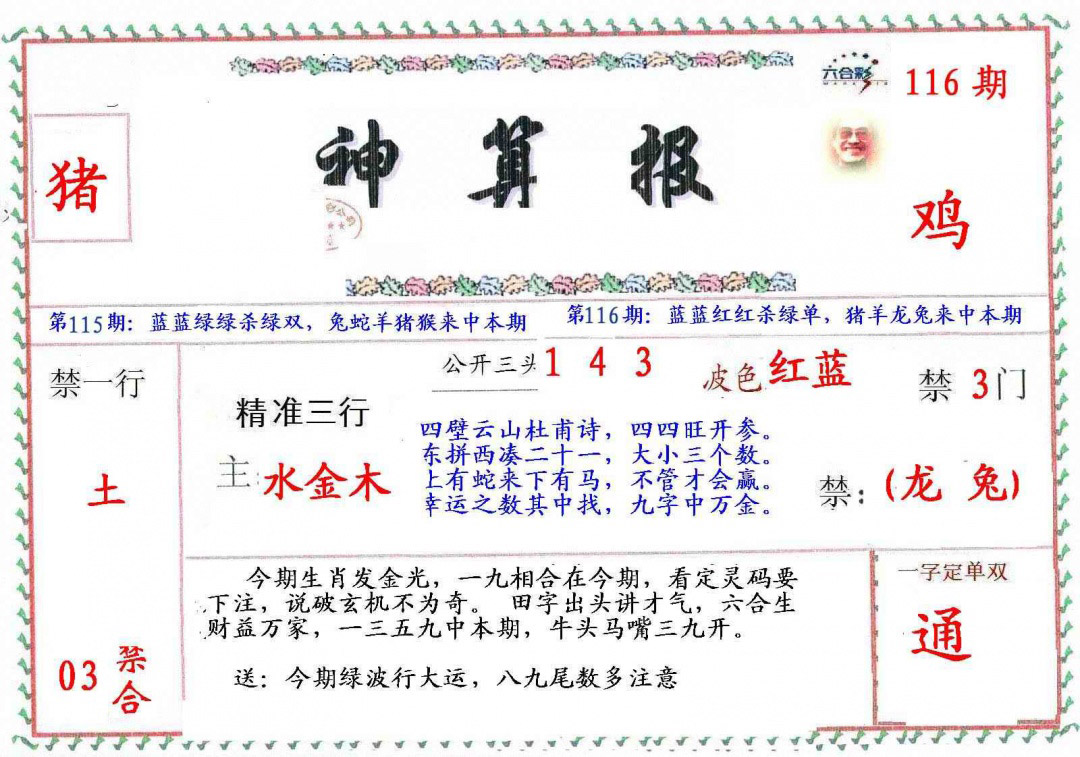 六合彩
116期
猪
神算报
鸡
第115期：蓝蓝绿绿杀绿双，兔蛇羊猪猴来中本期
第116期：蓝蓝红红杀绿单，猪羊龙兔来中本期
禁一行
土
03
禁合
公开三头 1 4 3
波色 红蓝
禁3门
精准三行
主:水金木
四壁云山杜甫诗，四四旺开参。
东拼西凑二十一，大小三个数。
上有蛇来下有马，不管才会赢。
幸运之数其中找，九字中万金。
禁：(龙 兔)
今期生肖发金光，一九相合在今期，看定灵码要
下注，说破玄机不为奇。田字出头讲才气，六合生
财益万家，一三五九中本期，牛头马嘴三九开。
送：今期绿波行大运，八九尾数多注意
一字定单双
通